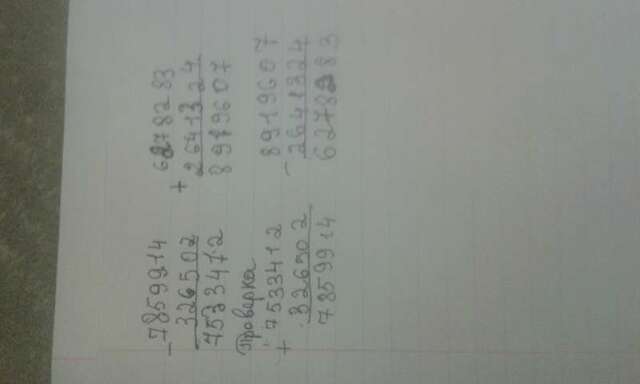 - 7859914
326502
7533412
Проверка
+ 7533412
326502
7859914
+ 6278283
2641324
8919607
- 8919607
2641324
6278283